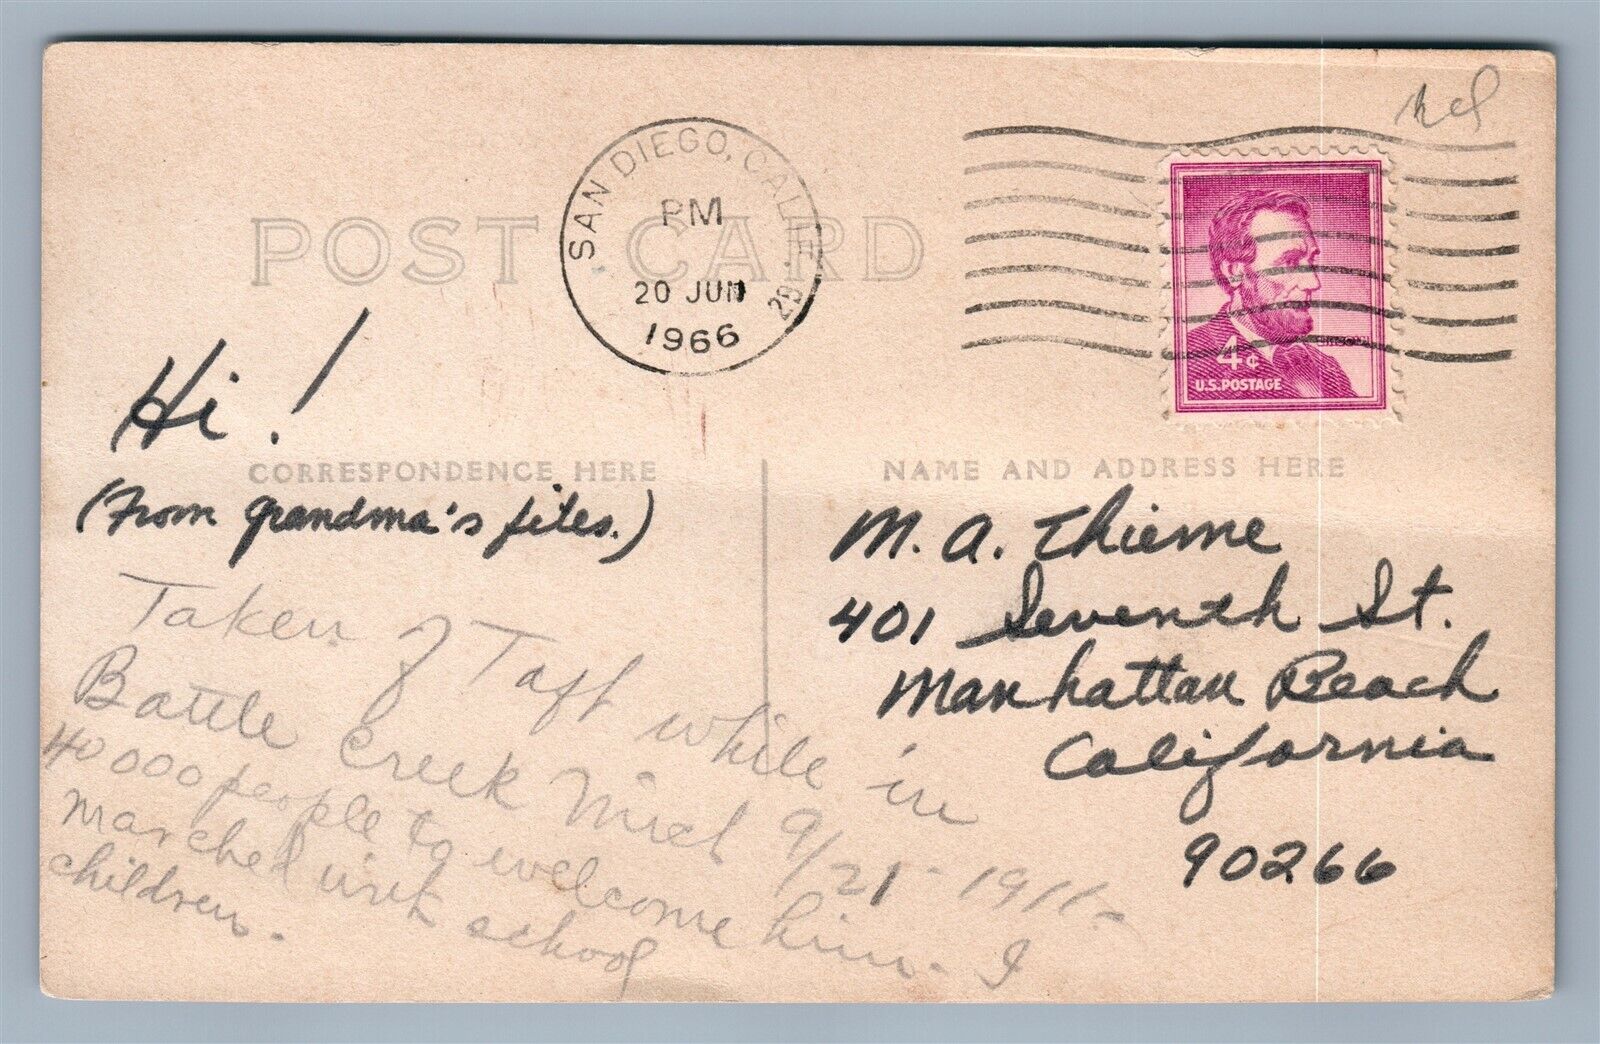 POST CARD
SAN DIEGO, CALIF.
PM
20 JUN
1966
LINCOLN
4¢
U.S. POSTAGE
Hi!
CORRESPONDENCE HERE
(From grandma's files.)
Taken of Taft while in
Battle Creek Mich 9/21-1911-
40000 people to welcome him. I
marched with school
children.
NAME AND ADDRESS HERE
M. A. Thieme
401 Seventh St.
Manhattan Beach
California
90266